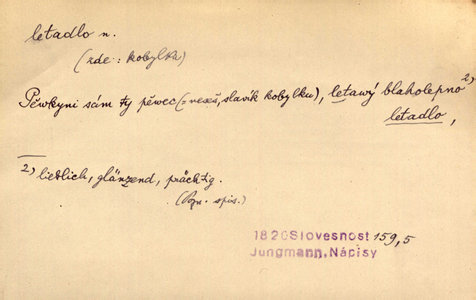 letadlo n.
(zde: kobylka)
Pěwkyni sám ty pěwec (= neseš, slavík kobylku), letawý blaholepno 2)
letadlo,
2) lieblich, glänzend, prächtig.
(Pozn. spis.)
1820 Slovesnost 159,5
Jungmann, Nápisy